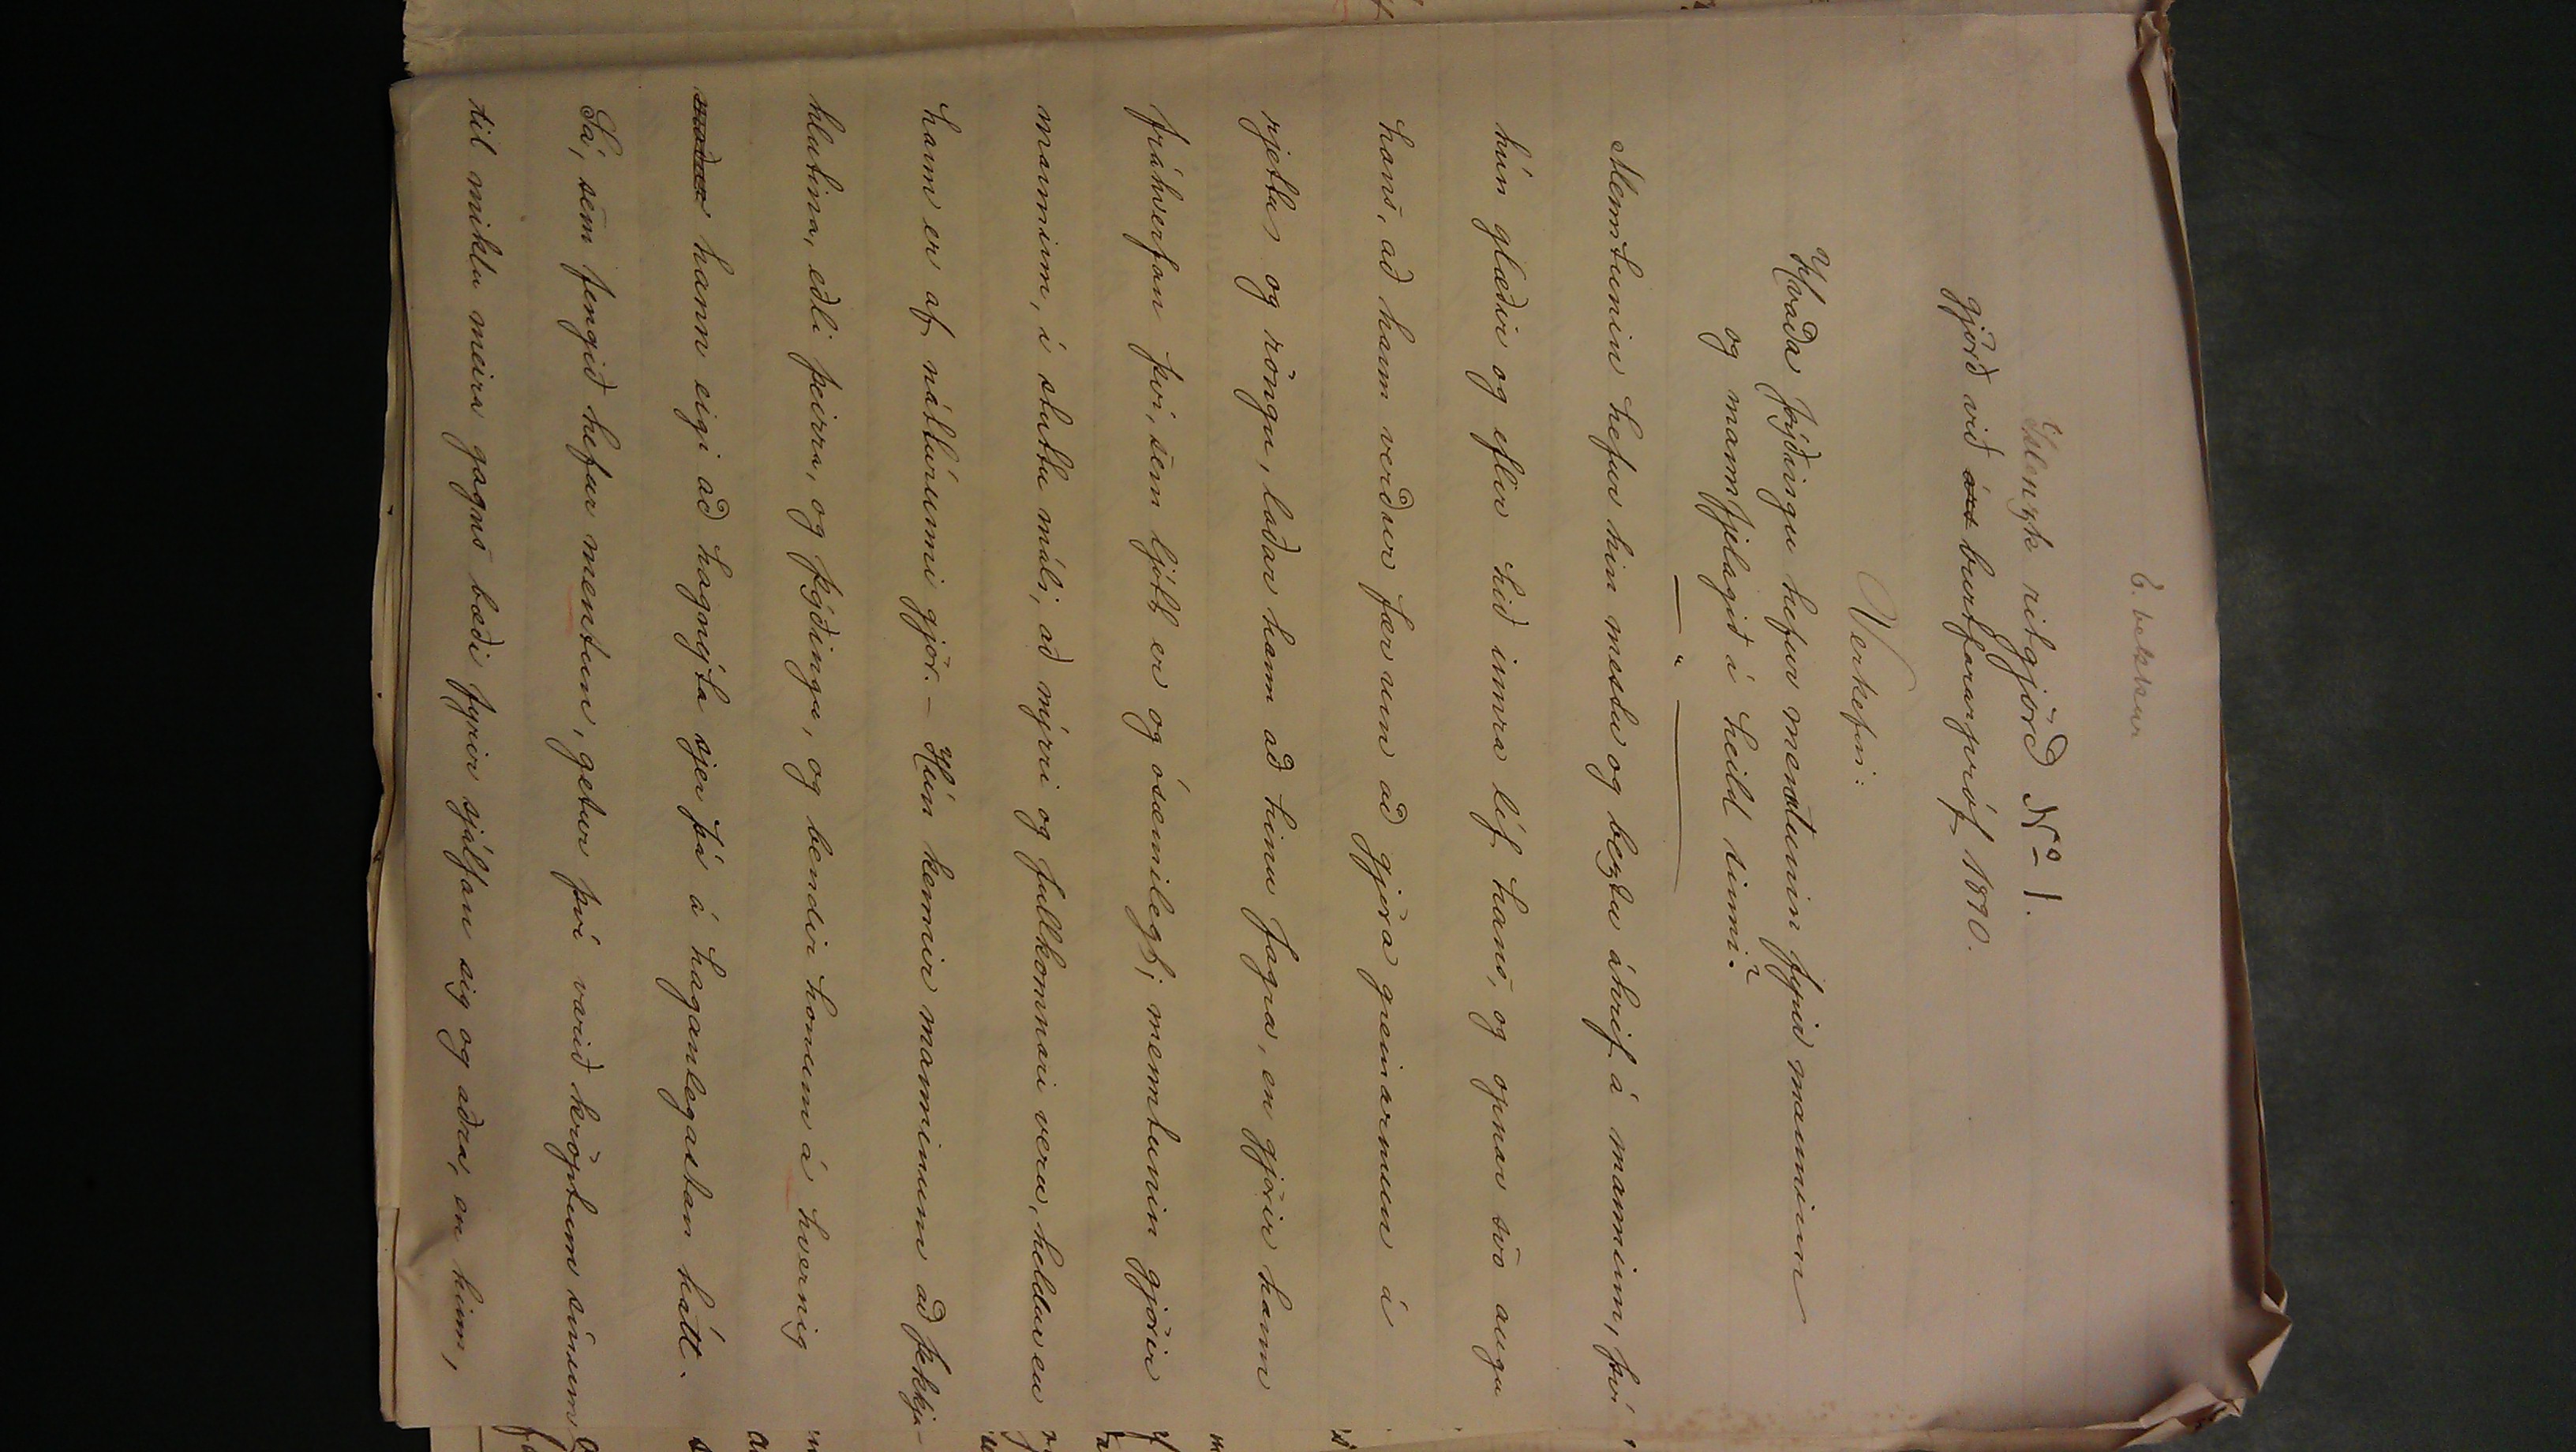 6. bekkur
Íslenzk ritgjörð No 1.
gjörð við burtfararpróf 1890.
Verkefni:
Hvaða þýðingu hefur menntunin fyrir manninn
og mannfjelagið í heild sinni?
Menntunin hefur hin mestu og beztu áhrif á manninn, því
hún glæðir og eflir hið innra líf hans, og opnar svo augu
hans, að hann verður fær um að gjöra greinarmun á
rjettu og röngu, laðar hann að hinu fagra, en gjörir hann
fráhverfan því, sem ljótt er og ósæmilegt; menntunin gjörir
manninn, í stuttu máli, að nýrri og fullkomnari veru, heldur en
hann er af náttúrunni gjör. – Hún kennir manninum að þekkja
hlutina, eðli þeirra, og þýðingu, og bendir honum á hvernig
hann eigi að hagnýta sjer þá á haganlegastan hátt.
Sá, sem fengið hefur mentun, getur því varið kröptum sínum
til miklu meira gagns bæði fyrir sjálfan sig og aðra, en hinn,